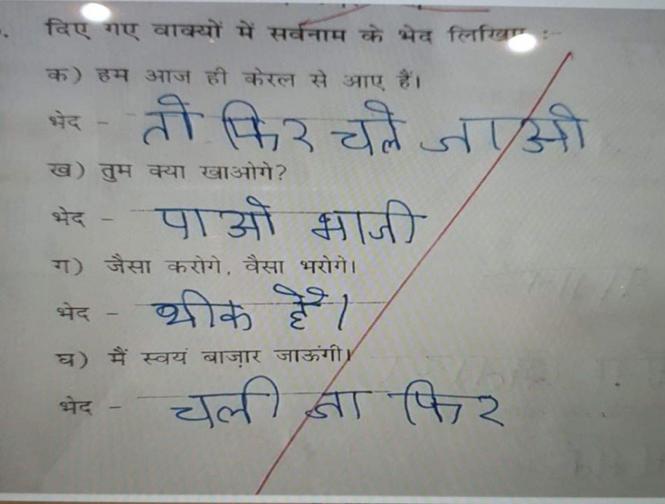 दिए गए वाक्यों में सर्वनाम के भेद लिखिए :-
क) हम आज ही केरल से आए हैं।
भेद - तो फिर चले जाओ
ख) तुम क्या खाओगे?
भेद - पाओ भाजी
ग) जैसा करोगे, वैसा भरोगे।
भेद - थीक है।
घ) मैं स्वयं बाज़ार जाऊंगी।
भेद - चली जा फिर